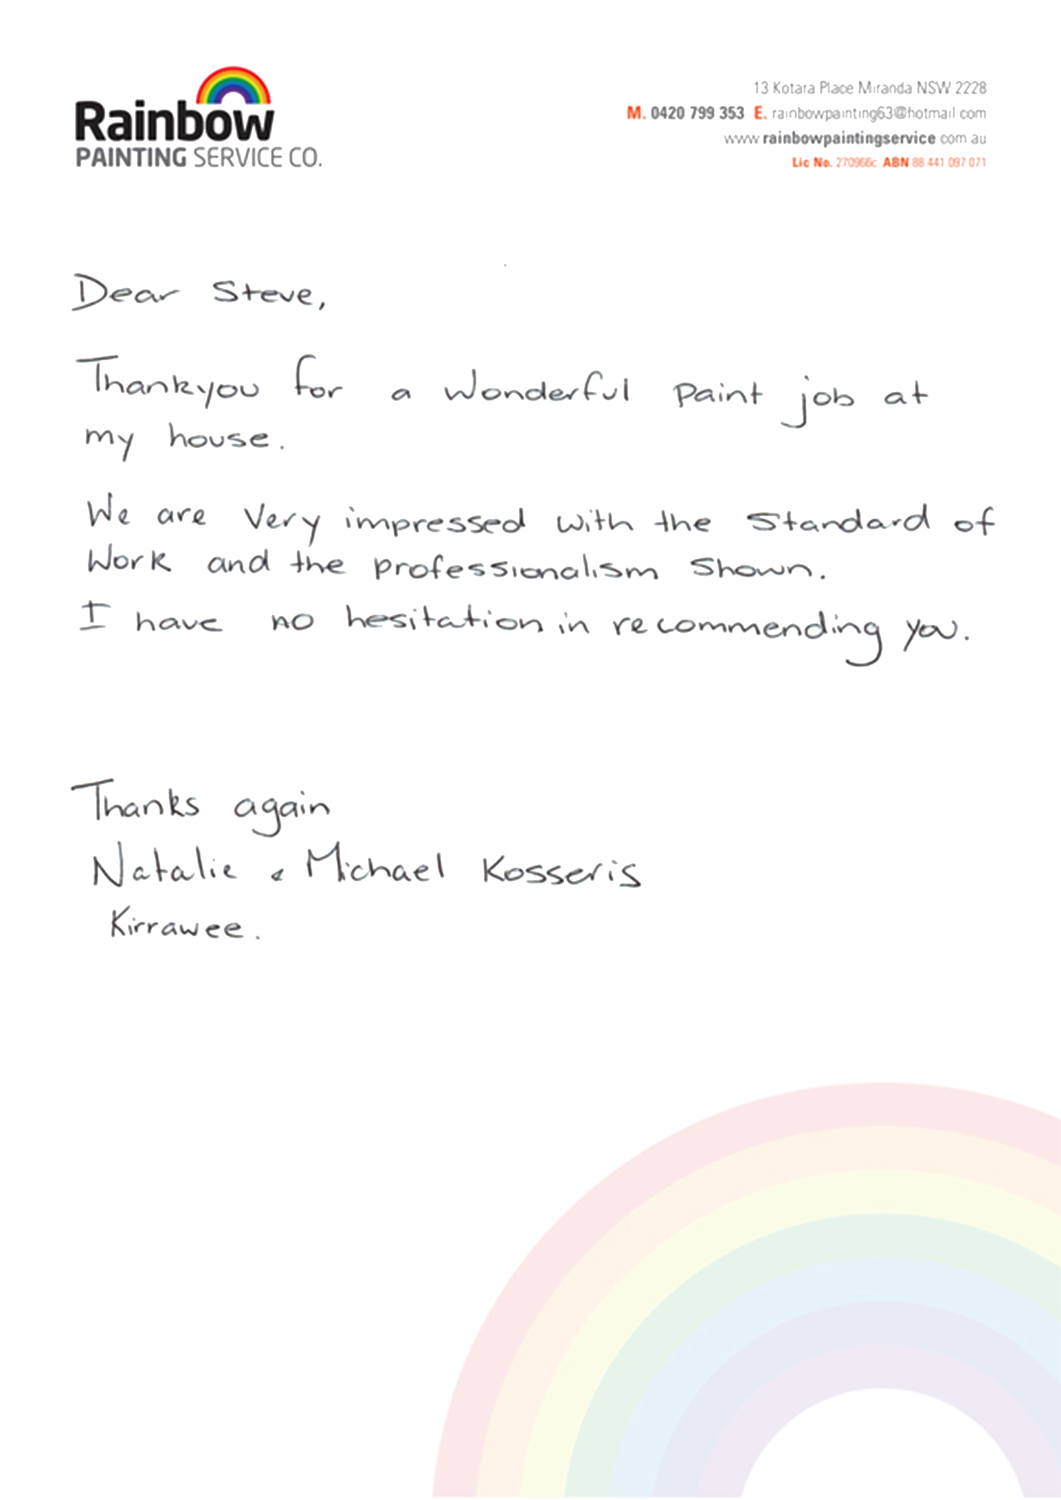 Rainbow
PAINTING SERVICE CO.
13 Kotara Place Miranda NSW 2228
M. 0420 799 353 E. rainbowpainting63@hotmail com
www rainbowpaintingservice com au
Lic No. 270966c ABN 88 441 097 071
Dear Steve,
Thankyou for a wonderful paint job at
my house.
We are very impressed with the standard of
work and the professionalism shown.
I have no hesitation in recommending you.
Thanks again
Natalie & Michael Kosseris
Kirrawee.